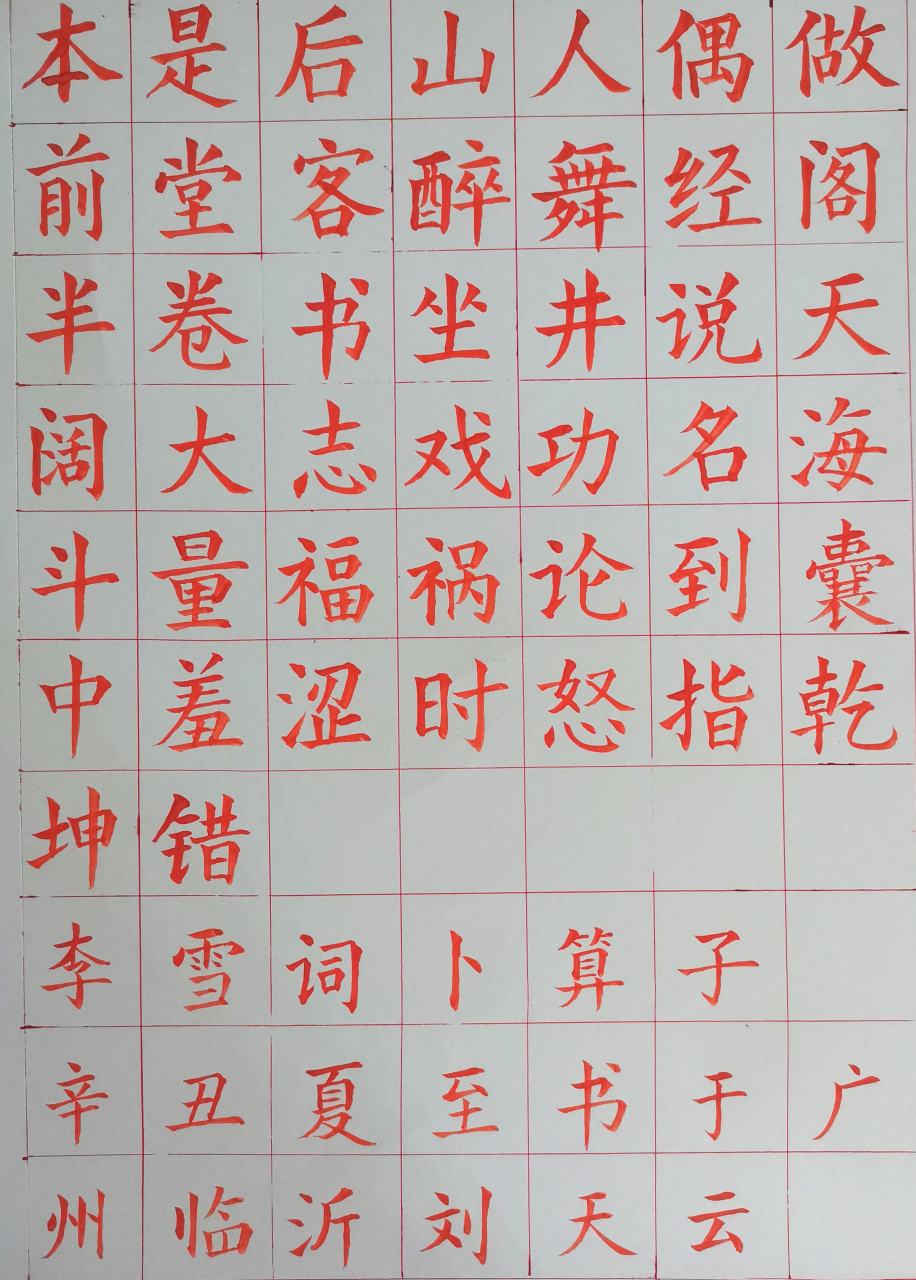 本是后山人偶做
前堂客醉舞经阁
半卷书坐井说天
阔大志戏功名海
斗量福祸论到囊
中羞涩时怒指乾
坤错
李雪词卜算子
辛丑夏至书于广
州临沂刘天云